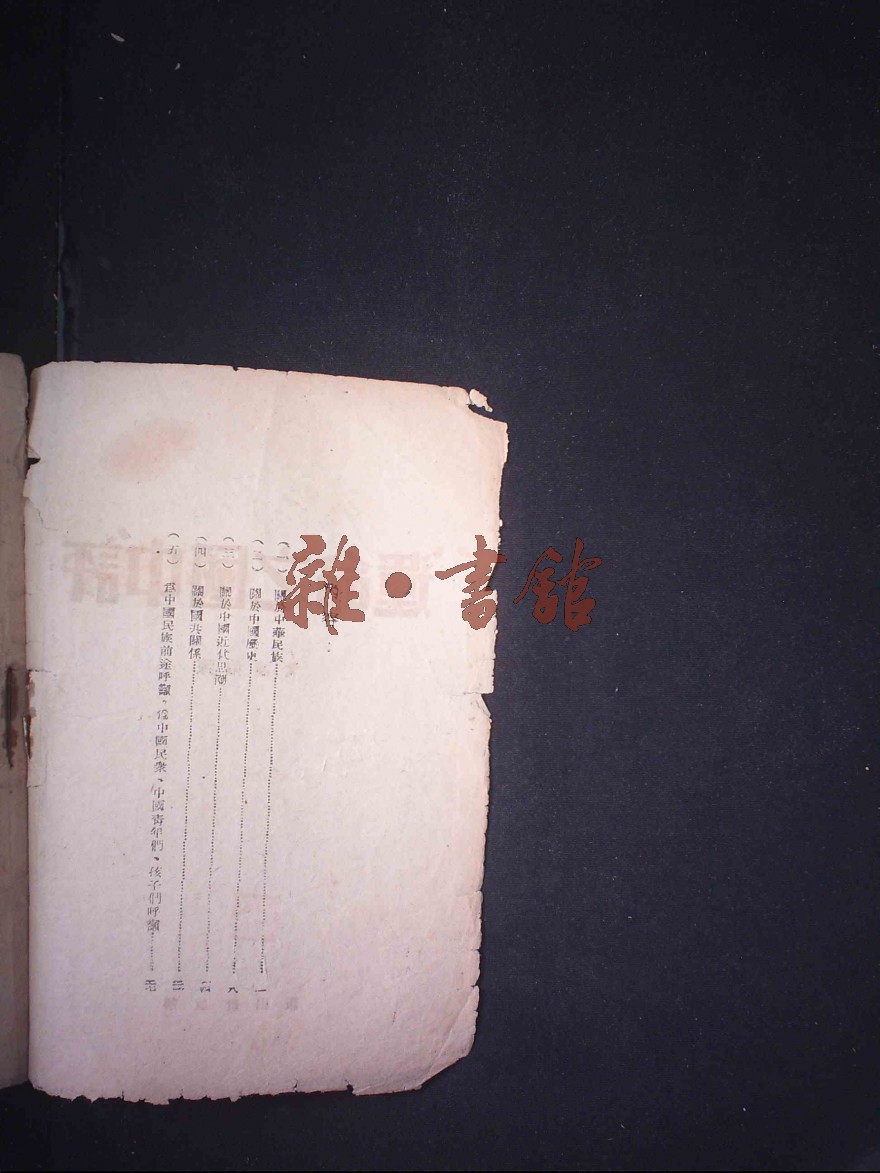 內容：
（一）關於中華民族……一
（二）關於中國歷史……八
（三）關於中國近代思潮……
（四）關於國共關係……
（五）爲中國民族前途呼籲、爲中國民衆、中國青年們、孩子們呼籲……
雜·書館